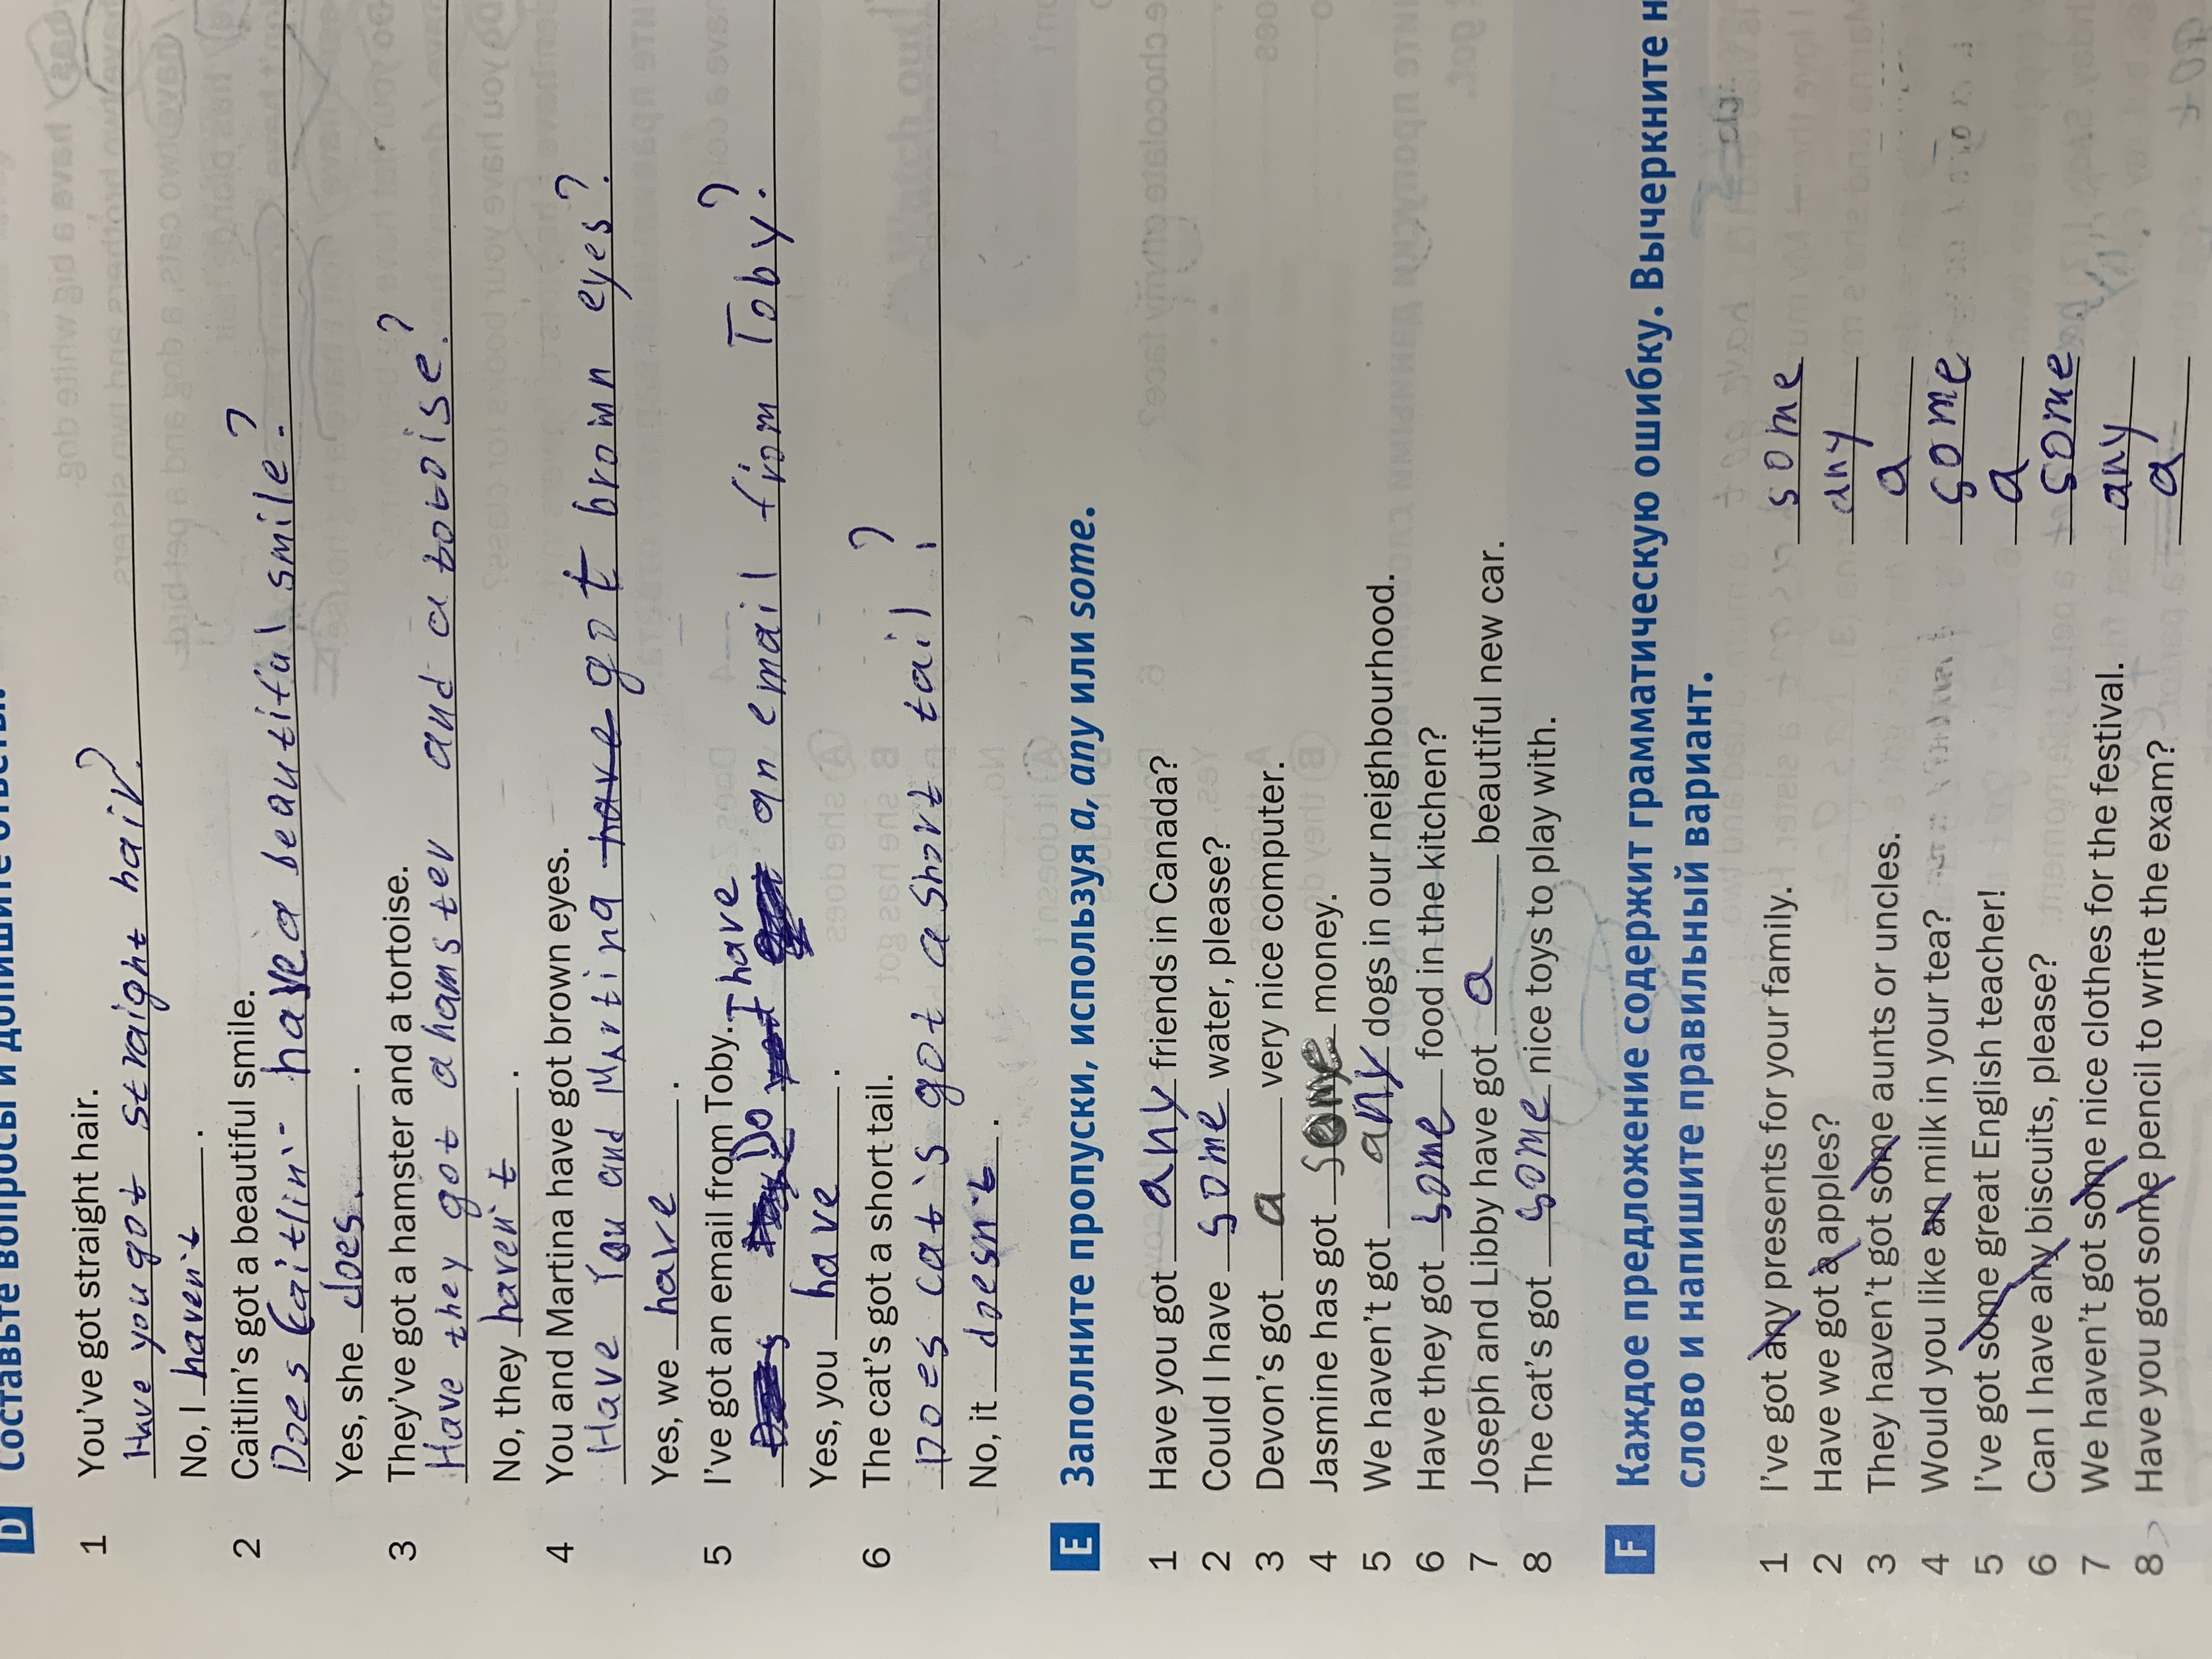 D Составьте вопросы и допишите ответы.
1 You've got straight hair.
Have you got straight hair?
No, I haven't.
2 Caitlin's got a beautiful smile.
Does Caitlin have a beautiful smile?
Yes, she does.
3 They've got a hamster and a tortoise.
Have they got a hamster and a totoise?
No, they haven't.
4 You and Martina have got brown eyes.
Have You and Martina have got brown eyes?
Yes, we have.
5 I've got an email from Toby.
Do I have an email from Toby?
Yes, you have.
6 The cat's got a short tail.
Does cat's got a short tail?
No, it doesn't.
E Заполните пропуски, используя a, any или some.
1 Have you got any friends in Canada?
2 Could I have some water, please?
3 Devon's got a very nice computer.
4 Jasmine has got some money.
5 We haven't got any dogs in our neighbourhood.
6 Have they got some food in the kitchen?
7 Joseph and Libby have got a beautiful new car.
8 The cat's got some nice toys to play with.
F Каждое предложение содержит грамматическую ошибку. Вычеркните
слово и напишите правильный вариант.
1 I've got any presents for your family. some
2 Have we got a apples? any
3 They haven't got some aunts or uncles. a
4 Would you like an milk in your tea? some
5 I've got some great English teacher! a
6 Can I have any biscuits, please? some
7 We haven't got some nice clothes for the festival. any
8 Have you got some pencil to write the exam? a